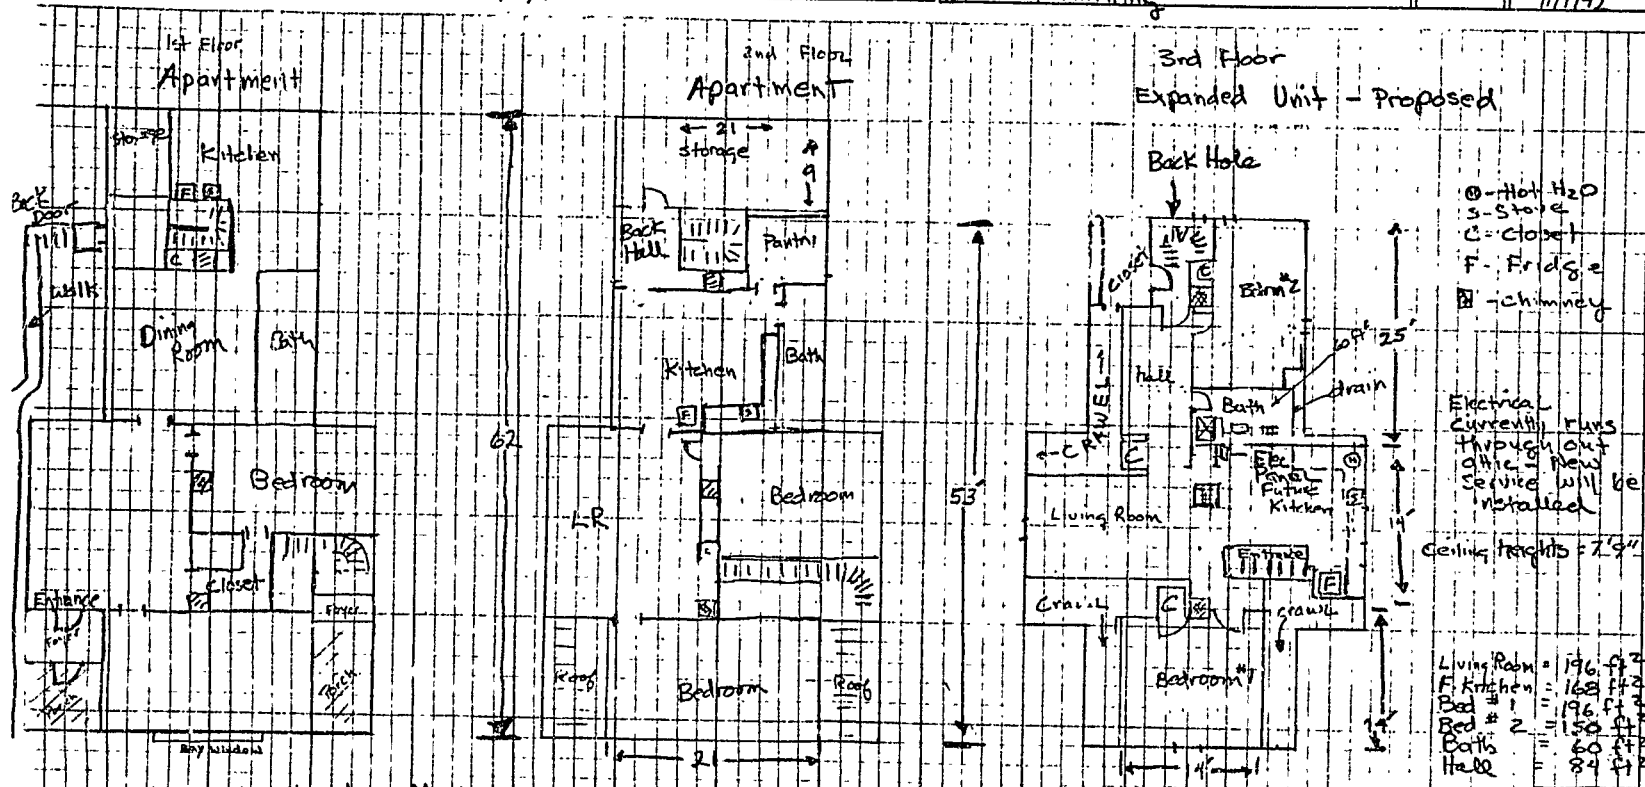 1st Floor
Apartment
Storage
Kitchen
F
S
Back
Door
C
Walk
Dining
Room
Bath
Bedroom
Closet
Entrance
Foyer
Foyer
Porch
Porch
Bay Window
2nd Floor
Apartment
21
Storage
9
Back
Hall
Pantri
62
Kitchen
Bath
F
S
LR
Bedroom
Roof
Bedroom
Roof
21
3rd Floor
Expanded Unit - Proposed
Back Hole
Closet
C
Hall
Bath
60 ft²
drain
25'
53'
C
Elec
Panel
Future
Kitchen
H
S
Living Room
14'
Entrance
F
Crawl
C
crawl
Bedroom #1
14'
14'
H - Hot H2O
S - Stove
C - Closet
F - Fridge
- Chimney
Electrical
Currently runs
through out
attic New
Service will be
installed
Ceiling heights = 7'9"
Living Room = 196 ft²
F. Kitchen = 168 ft²
Bed # 1 = 196 ft²
Bed # 2 = 150 ft²
Bath = 60 ft²
Hall = 84 ft²